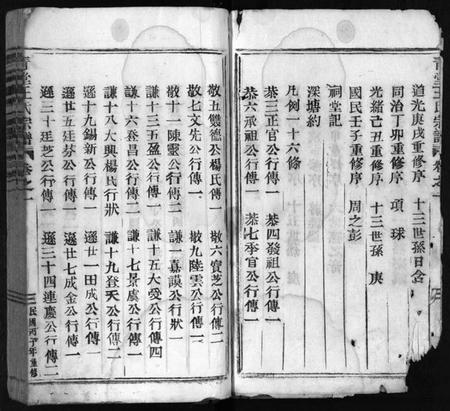 道光庚戌重修序 十三世孫日含
同治丁卯重修序 項 球
光緒己丑重修序 十三世孫 庚
國民壬子重修序 周之彭
祠堂記
深塘約
凡例一十六條
恭三正官公行傳一 恭四發祖公行傳一
恭六承祖公行傳一 恭七季官公行傳一
敬五雙德公楊氏傳一 敬六寶芝公行傳二
敬七文先公行傳一 敬九陸雲公行傳一
敬十一陳靈公行傳二 謙一嘉謨公行狀一
謙十三五盈公行傳一 謙十五大愛公行傳四
謙十六春昌公行傳一 謙十七景虞公行傳一
謙十八大興楊氏行狀 謙十九登天公行傳二
遜十九錫新公行傳一 遜廿一田成公行傳一
遜廿五廷芬公行傳一 遜廿七成金公行傳一
遜三十廷芝公行傳一 遜三十四連慶公行傳二
堂王氏宗譜 卷之一
民國丙子年重修